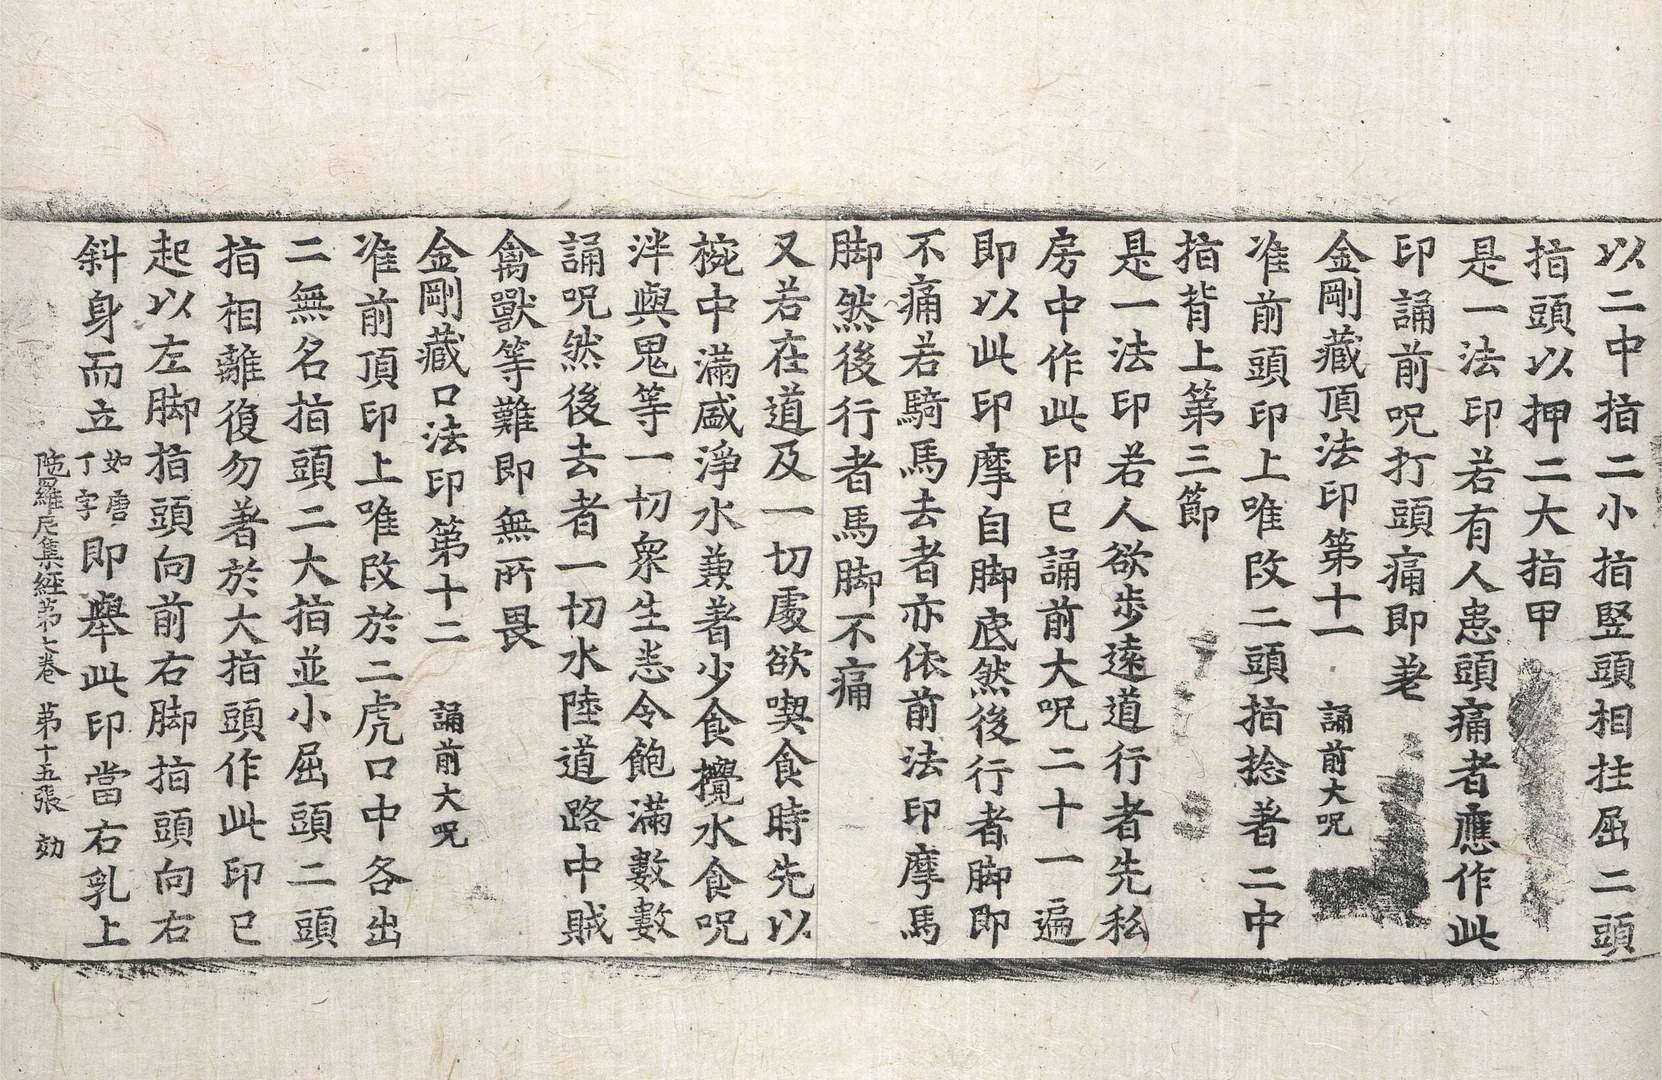 以二中指二小指竪頭相拄屈二頭
指頭以押二大指甲
是一法印若有人患頭痛者應作此
印誦前呪打頭痛即差
金剛藏頂法印第十一 誦前大呪
准前頭印上唯改二頭指捻著二中
指背上第三節
是一法印若人欲步遠道行者先私
房中作此印已誦前大呪二十一遍
即以此印摩自脚底然後行者脚即
不痛若騎馬去者亦依前法印摩馬
脚然後行者馬脚不痛
又若在道及一切處欲喫食時先以
椀中滿盛淨水兼著少食攪水食呪
泮與鬼等一切衆生悉令飽滿數數
誦呪然後去者一切水陸道路中賊
禽獸等難即無所畏
金剛藏口法印第十二 誦前大呪
准前頂印上唯改於二虎口中各出
二無名指頭二大指並小屈頭二頭
指相離復勿著於大指頭作此印已
起以左脚指頭向前右脚指頭向右
斜身而立如唐丁字即舉此印當右乳上
陁羅尼集經第七卷 第十五張 効